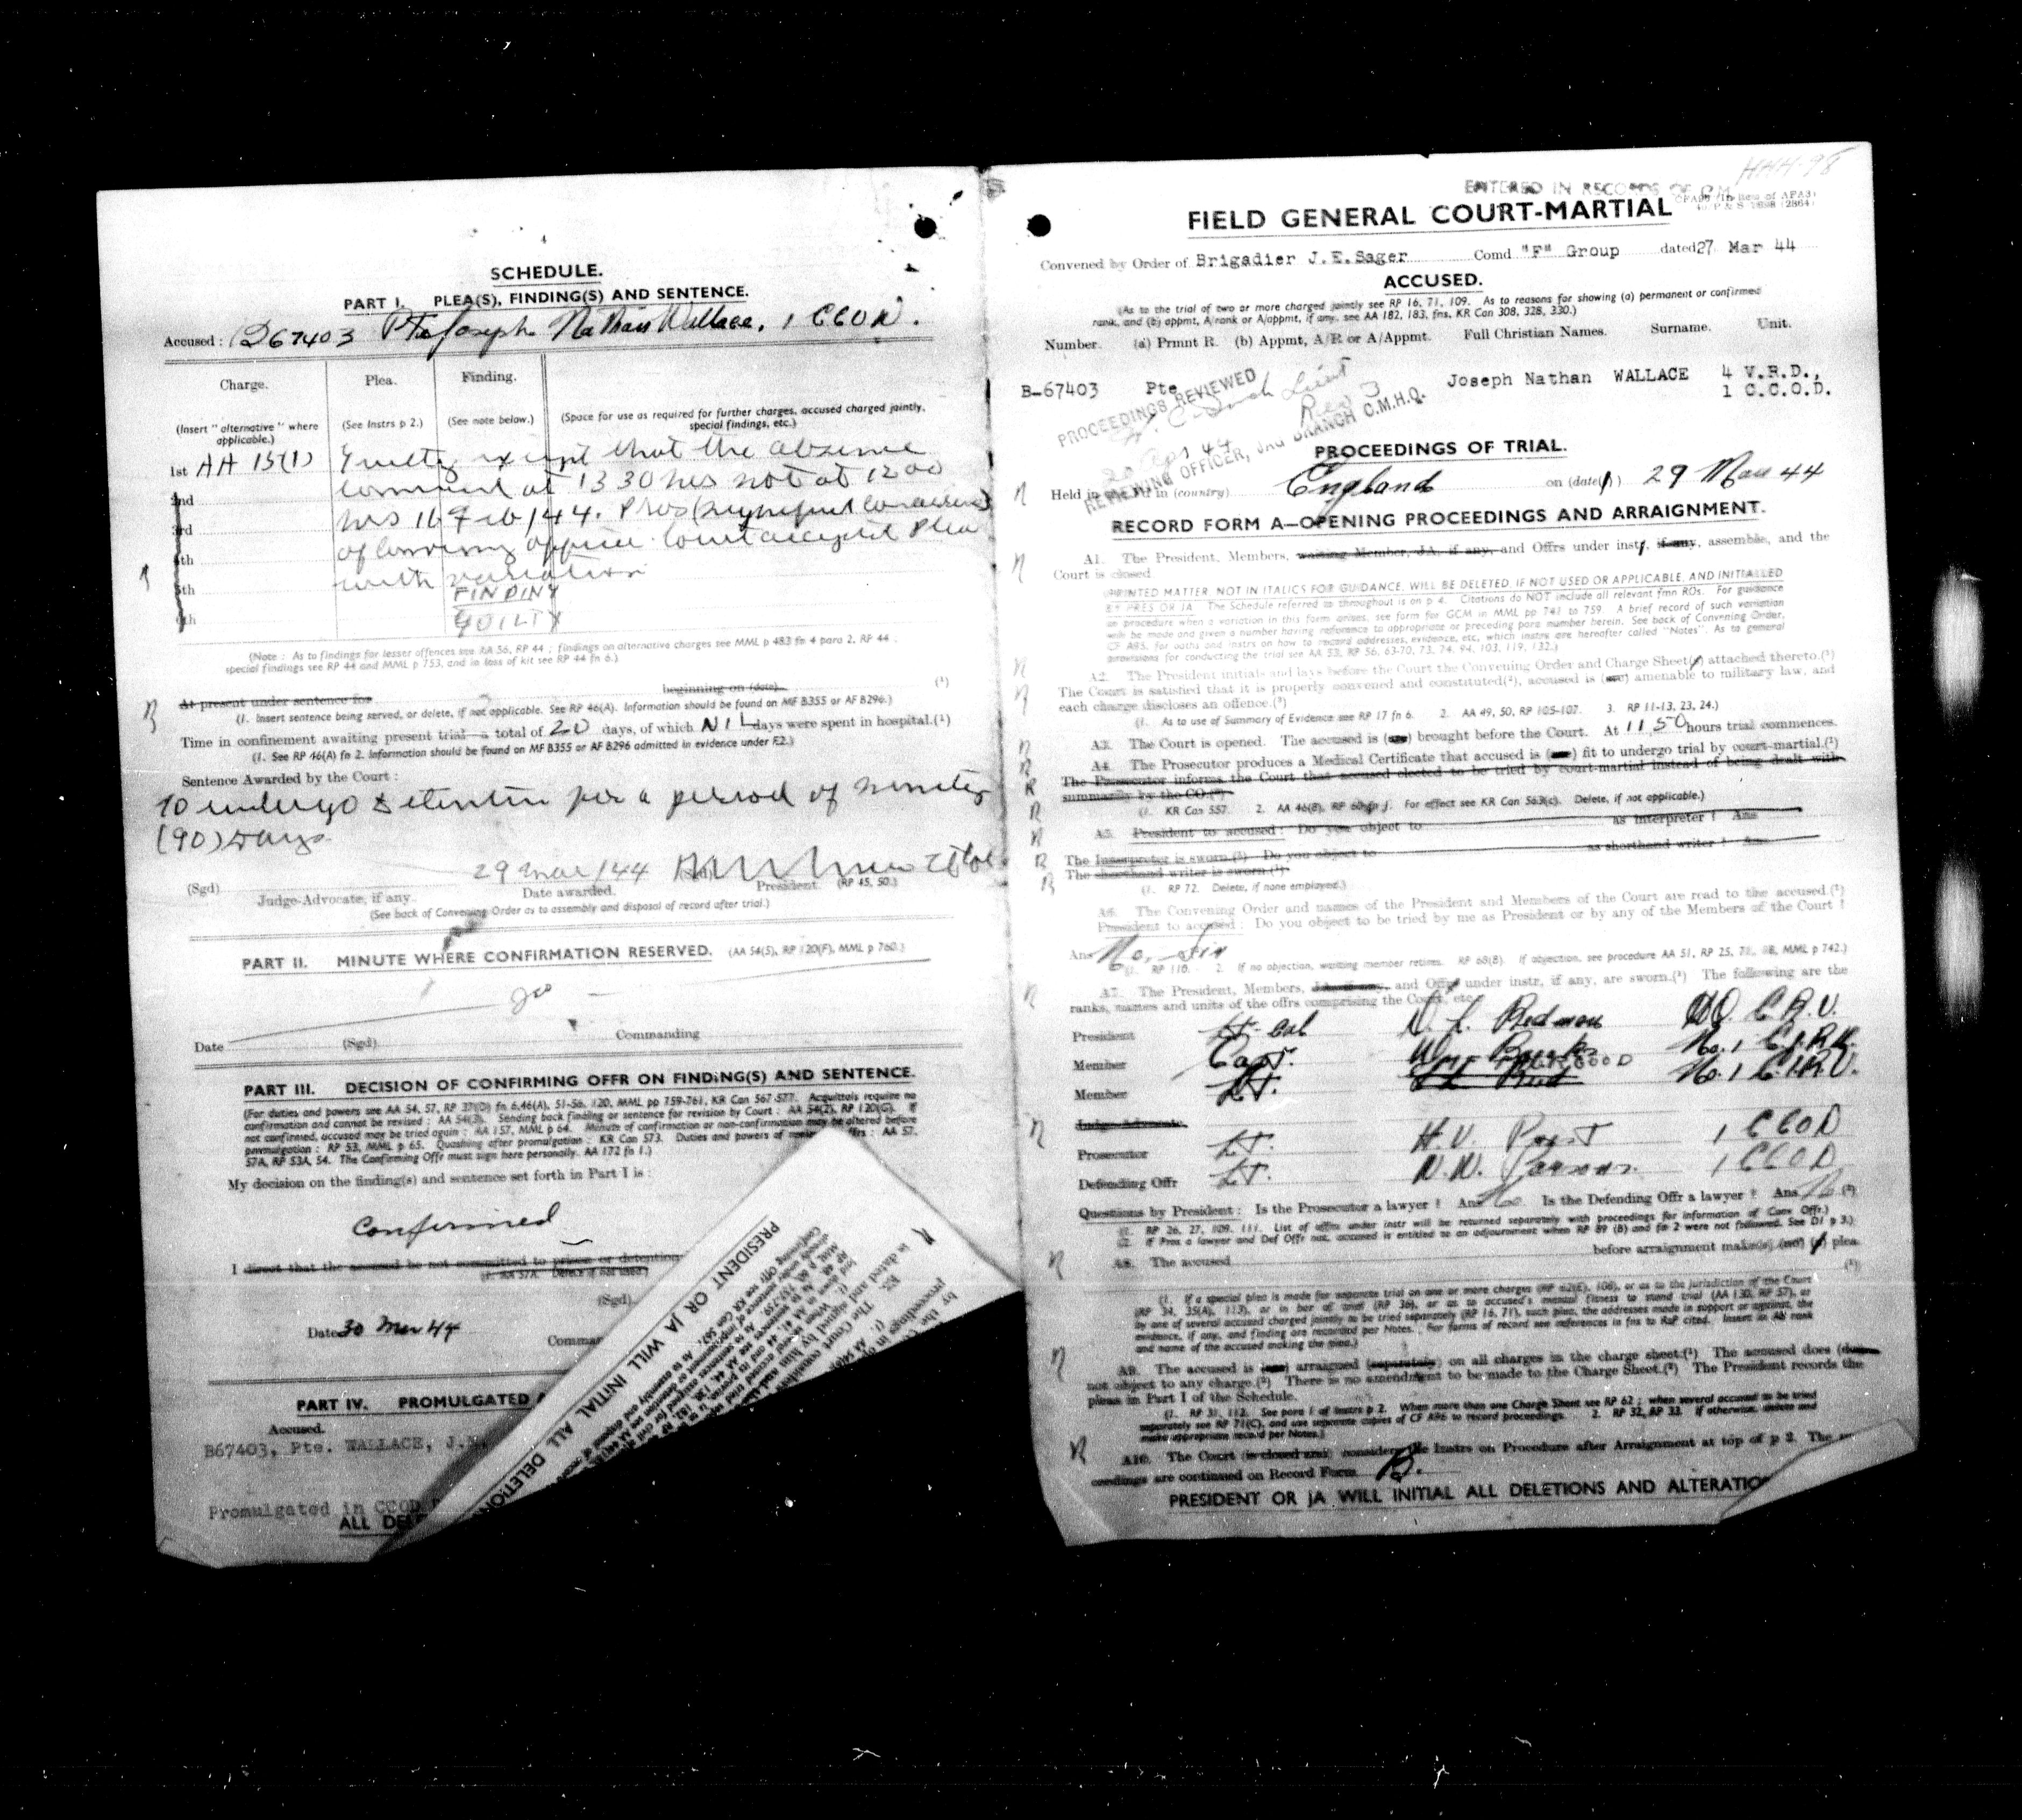 SCHEDULE.
PART I. PLEA(S), FINDING(S) AND SENTENCE.
Accused : B67403 Pte Joseph Nathan Wallace, 1 CCOD.
Charge. Plea. Finding.
(Insert " alternative " where applicable.) (See Instrs p 2.) (See note below.) (Space for use as required for further charges, accused charged jointly, special findings, etc.)
1st AA 15(1) Guilty except that the absence
2nd commenced at 1330 hrs not at 1200
3rd hrs 16 Feb/44. Pros (signified concurrence)
4th of convening officer. Court accepted Plea
5th with variation
FINDING
6th GUILTY
(Note : As to findings for lesser offences see AA 56, RP 44 ; findings on alternative charges see MML p 483 fn 4 para 2, RP 44 ;
special findings see RP 44 and MML p 753, and in loss of kit see RP 44 fn 6.)
At present under sentence for beginning on (date) (1)
(1. Insert sentence being served, or delete, if not applicable. See RP 46(A). Information should be found on MF B355 or AF B296.)
Time in confinement awaiting present trial—a total of 20 days, of which NIL days were spent in hospital.(1)
(1. See RP 46(A) fn 2. Information should be found on MF B355 or AF B296 admitted in evidence under F.2.)
Sentence Awarded by the Court :
To undergo detention for a period of ninety
(90) Days.
29 Mar/44
(Sgd) Judge-Advocate, if any. Date awarded. President. (RP 45, 50.)
(See back of Convening Order as to assembly and disposal of record after trial.)
PART II. MINUTE WHERE CONFIRMATION RESERVED. (AA 54(5), RP 120(F), MML p 760.)
Date (Sgd) Commanding
PART III. DECISION OF CONFIRMING OFFR ON FINDING(S) AND SENTENCE.
(For duties and powers see AA 54, 57, RP 37(D) fn 6,46(A), 51-56, 120, MML pp 759-761, KR Can 567-577. Acquittals require no
confirmation and cannot be revised : AA 54(3). Sending back finding or sentence for revision by Court : AA 54(2), RP 120(G). If
not confirmed, accused may be tried again : AA 157, MML p 64. Minute of confirmation or non-confirmation may be altered before
promulgation : RP 53, MML p 65. Quashing after promulgation : KR Can 573. Duties and powers of offrs : AA 57,
57A, RP 53A, 54. The Confirming Offr must sign here personally. AA 172 fn 1.)
My decision on the finding(s) and sentence set forth in Part I is :
Confirmed
I direct that the accused be not committed to prison or detention
(1. AA 57A. Delete if not used.)
(Sgd)
Date 30 Mar 44
PART IV. PROMULGATED
Accused.
B67403, Pte. WALLACE, J.N.
Promulgated in CCOD
ALL
PRESIDENT OR JA WILL INITIAL ALL DELETION
ENTERED IN RECORDS OF C.M.
HHH-98
FIELD GENERAL COURT-MARTIAL
Convened by Order of Brigadier J.E.Sager Comd "F" Group dated 27 Mar 44
ACCUSED.
(As to the trial of two or more charged jointly see RP 16, 71, 109. As to reasons for showing (a) permanent or confirmed
rank, and (b) appmt, A/rank or A/appmt, if any, see AA 182, 183, fns, KR Can 308, 328, 330.)
Number. (a) Prmnt R. (b) Appmt, A/R or A/Appmt. Full Christian Names. Surname. Unit.
B-67403 Pte Joseph Nathan WALLACE 4 V.R.D.,
1 C.C.O.D.
PROCEEDINGS REVIEWED
20 Apr 44
REVIEWING OFFICER, JAG BRANCH C.M.H.Q.
PROCEEDINGS OF TRIAL.
Held in the in (country) England on (date) 29 Mar 44
RECORD FORM A—OPENING PROCEEDINGS AND ARRAIGNMENT.
A1. The President, Members, waiting Member, JA, if any, and Offrs under instr, if any, assemble, and the
Court is closed
(PRINTED MATTER NOT IN ITALICS FOR GUIDANCE, WILL BE DELETED, IF NOT USED OR APPLICABLE, AND INITIALLED
BY PRES OR JA. The Schedule referred to throughout is on p 4. Citations do NOT include all relevant fmn ROs. For guidance
on procedure when a variation in this form arises, see form for GCM in MML pp 741 to 759. A brief record of such variation
will be made and given a number having reference to appropriate or preceding para number herein. See back of Convening Order,
CF A85, for oaths and instrs on how to record addresses, evidence, etc, which instrs are hereafter called "Notes". As to general
provisions for conducting the trial see AA 53, RP 56, 63-70, 73, 74, 94, 103, 119, 132.)
A2. The President initials and lays before the Court the Convening Order and Charge Sheet(s) attached thereto.(1)
The Court is satisfied that it is properly convened and constituted(2), accused is (are) amenable to military law, and
each charge discloses an offence.(3)
(1. As to use of Summary of Evidence see RP 17 fn 6. 2. AA 49, 50, RP 105-107. 3. RP 11-13, 23, 24.)
A3. The Court is opened. The accused is (are) brought before the Court. At 1150 hours trial commences.
A4. The Prosecutor produces a Medical Certificate that accused is (are) fit to undergo trial by court-martial.(1)
The Prosecutor informs the Court that accused elected to be tried by court-martial instead of being dealt with
summarily by the CO.(2)
(1. KR Can 557. 2. AA 46(8), RP For effect see KR Can 563(c). Delete, if not applicable.)
A5. President to accused : Do you object to as interpreter ? Ans
The Interpreter is sworn.(1) Do you object to as shorthand writer ? Ans
The shorthand writer is sworn.(1)
(1. RP 72. Delete, if none employed.)
A6. The Convening Order and names of the President and Members of the Court are read to the accused.(1)
President to accused : Do you object to be tried by me as President or by any of the Members of the Court ?
Ans No, Sir
(1. RP 110. 2. If no objection, waiting member retires. RP 68(B). If objection, see procedure AA 51, RP 25, 71, MML p 742.)
A7. The President, Members, and Offrs under instr, if any, are sworn.(1) The following are the
ranks, names and units of the offrs comprising the Court, etc
President Lt-Col Redman HQ C.R.U.
Member Capt. No. 1 C.I.R.U.
Member Lt. No. 1 C.I.R.U.
Judge-Advocate
Prosecutor Lt. H.V. 1 CCOD
Defending Offr Lt. N.W. Parsons 1 CCOD
Questions by President : Is the Prosecutor a lawyer ? Ans No. Is the Defending Offr a lawyer ? Ans No (2)
(1. RP 26, 27, 109, 111. List of offrs under instr will be returned separately with proceedings for information of Conv Offr.)
(2. If Pros a lawyer and Def Offr not, accused is entitled to an adjournment when RP 89 (B) and fn 2 were not followed. See D1 p 3.)
A8. The accused before arraignment make(s) (no) (a) plea
(1)
(1. If a special plea is made for separate trial on one or more charges (RP 62(E), 108), or as to the jurisdiction of the Court
(RP 34, 35(A), 113), or in bar of trial (RP 36), or as to accused's mental fitness to stand trial (AA 130, RP 57), or
by one of several accused charged jointly to be tried separately (RP 16, 71), such plea, the addresses made in support or against, the
evidence, if any, and finding are recorded per Notes. For forms of record see references in fns to RsP cited. Insert in A8 rank
and name of the accused making the plea.)
A9. The accused is (are) arraigned (separately) on all charges in the charge sheet.(1) The accused does
not object to any charge.(2) There is no amendment to be made to the Charge Sheet.(2) The President records the
pleas in Part I of the Schedule.
(1. RP 31, 112. See para 1 of Instrs p 2. When more than one Charge Sheet see RP 62 ; when several accused to be tried
separately see RP 71(C), and use separate copies of CF A86 to record proceedings. 2. RP 32, 33. If otherwise, delete and
make appropriate record per Notes.)
A10. The Court (is closed and) considers the Instrs on Procedure after Arraignment at top of p 2. The
ceedings are continued on Record Form B.
PRESIDENT OR JA WILL INITIAL ALL DELETIONS AND ALTERATIO